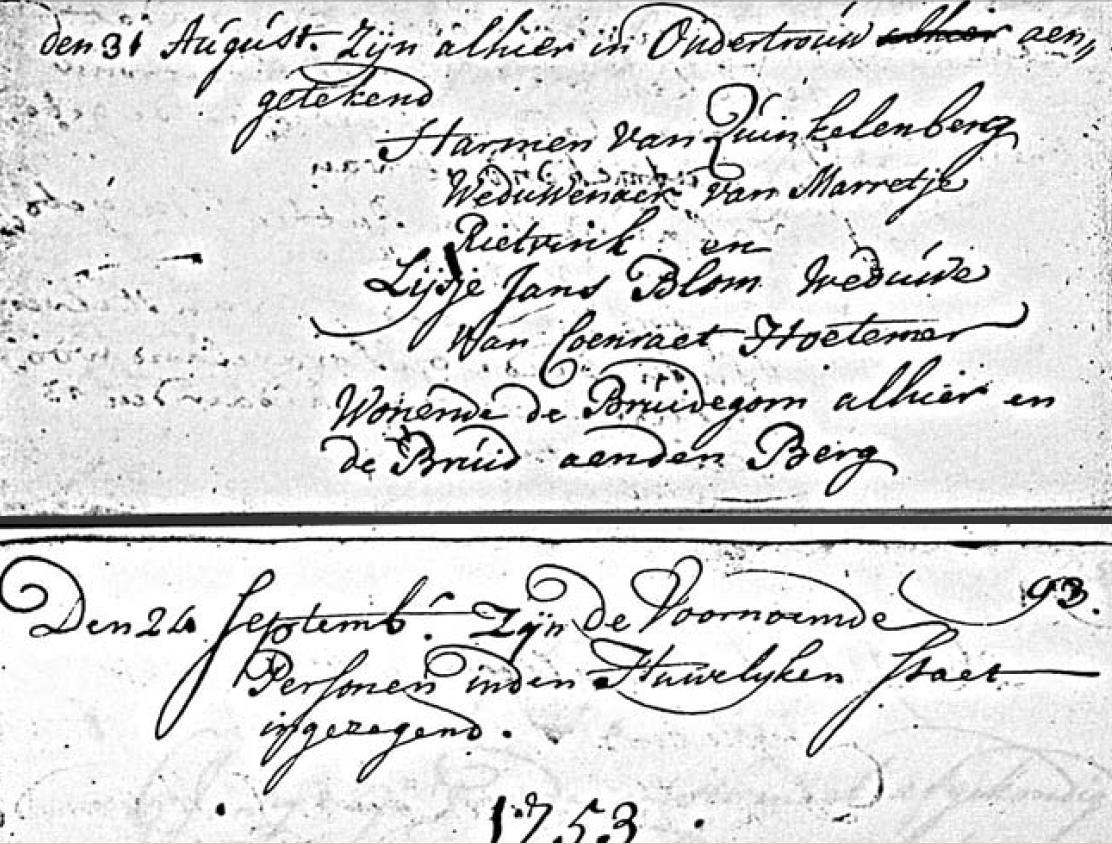 den 31 August. Zijn alhier in Ondertrouw alhier aen„
getekend
Harmen van Quinkelenberg
Weduwenaer van Marretje
Rietvink en
Lijsje Jans Blom Weduwe
Van Coenraet Hoetemer
Wonende de Bruidegom alhier en
de Bruid aenden Berg
93.
Den 24 Septemb.r Zijn de Voornoemde
Personen inden Huwelyken staet
ingezegend.
1753.